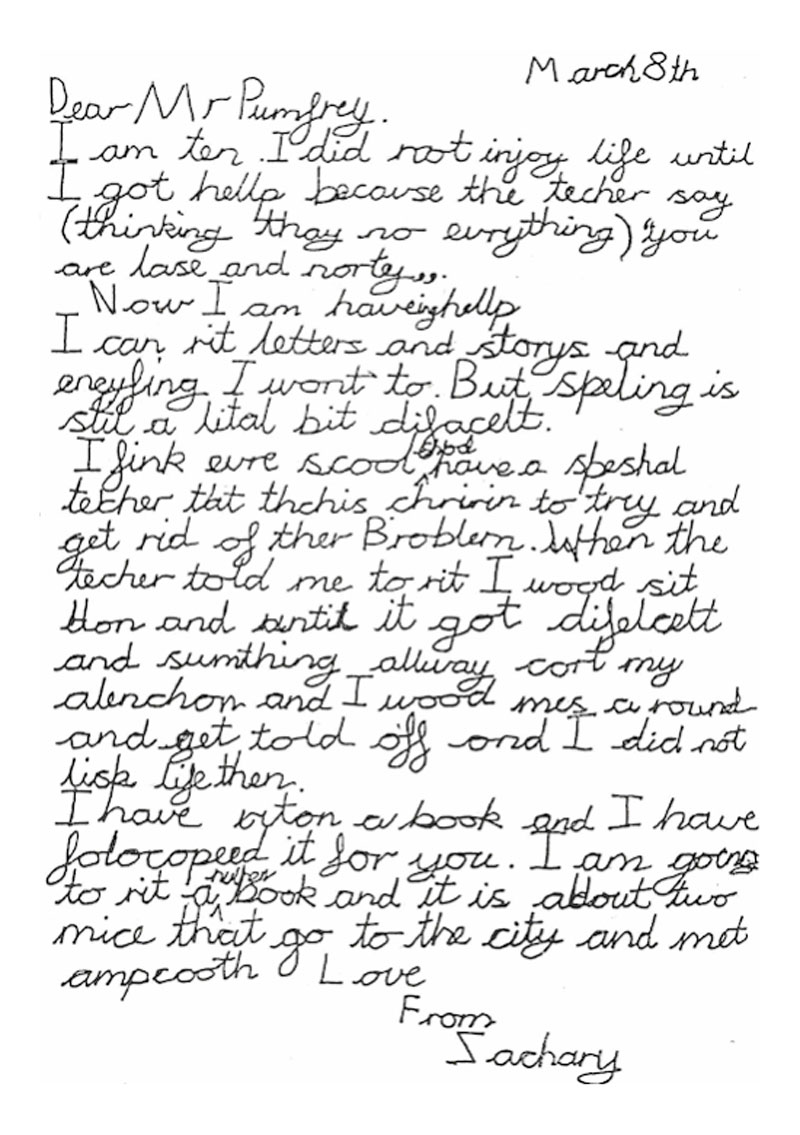 March 8th
Dear Mr Pumfrey.
I am ten. I did not injoy life until
I got hellp because the techer say
(thinking thay no evrything) "you
are lase and nortey,,.
Now I am haveing hellp
I can rit letters and storys and
eneyfing I wont to. But speling is
stil a lital bit difacelt.
I fink evre scool shod have a speshal
techer that thchis chririn to trey and
get rid of ther Broblem. When the
techer told me to rit I wood sit
and until it got difelcelt
and sumthing allway cort my
atenchon and I wood mes a round
and get told off and I did not
lisk life then.
I have ryton a book and I have
fotocopeed it for you. I am going
to rit a nuther book and it is about two
mice that go to the city and met
ampcooth Love
From
Zachary